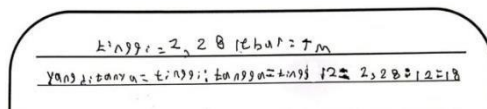 tinggi = 2,28 lebar = 7m
yang ditanya = tinggi; tangga = tinggi 12 = 2,28 = 12 = 18